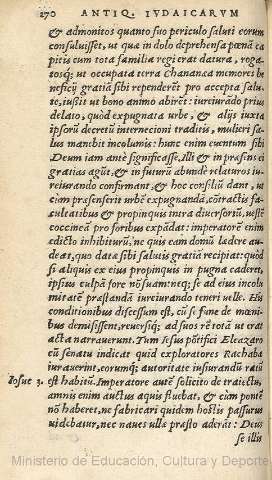 270 ANTIQ. IVDAICARVM
& admonitos quanto suo periculo saluti eorum
consuluisset, ut quæ in dolo deprehensa pœnā ca
pitis cum tota familia regi erat datura, roga-
tosq; ut occupata terra Chananæa memores be
neficij gratiā sibi rependerēt pro accepta salu-
te, iussit ut bono animo abirēt: iureiurādo prius
delato, quòd expugnata urbe, & alijs iuxta
ipsorū decretū internecioni traditis, mulieri sa-
lus manebit incolumis: hunc enim euentum sibi
Deum iam antè significasse. Illi & in præsens ei
gratias agūt, & in futurū abundè relaturos iu-
reiurando confirmant, & hoc consiliū dant, ut
cùm præsenserit urbē expugnandā, cōtractis fa-
cultatibus & propinquis intra diuersoriū, uestē
coccineā pro foribus expādat: imperatorē enim
edicto inhibiturū, ne quis eam domū lædere au-
deat, quo data sibi salutis gratiā recipiat: quòd
si aliquis ex eius propinquis in pugna caderet,
ipsius culpā fore nō suam: neq; se ad eius incolu
mitatē præstandā iureiurando teneri uelle. His
conditionibus discessum est, cū se fune de mœni-
bus demisissent, reuersiq; ad suos rē tota ut erat
acta narrauerunt. Tum Iesus pōtifici Eleazaro
cū senatu indicat quid exploratores Rachabæ
iurauerint, eorumq; autoritate iusiurādū ratū
Iosue 3. est habitū. Imperatore autē solicito de traiectu,
amnis enim auctus aquis fluebat, & cùm pontē
nō haberet, ne fabricari quidem hostis passurus
uidebatur, nec naues ullæ præsto aderāt: Deus
se illis
Ministerio de Educación, Cultura y Deporte